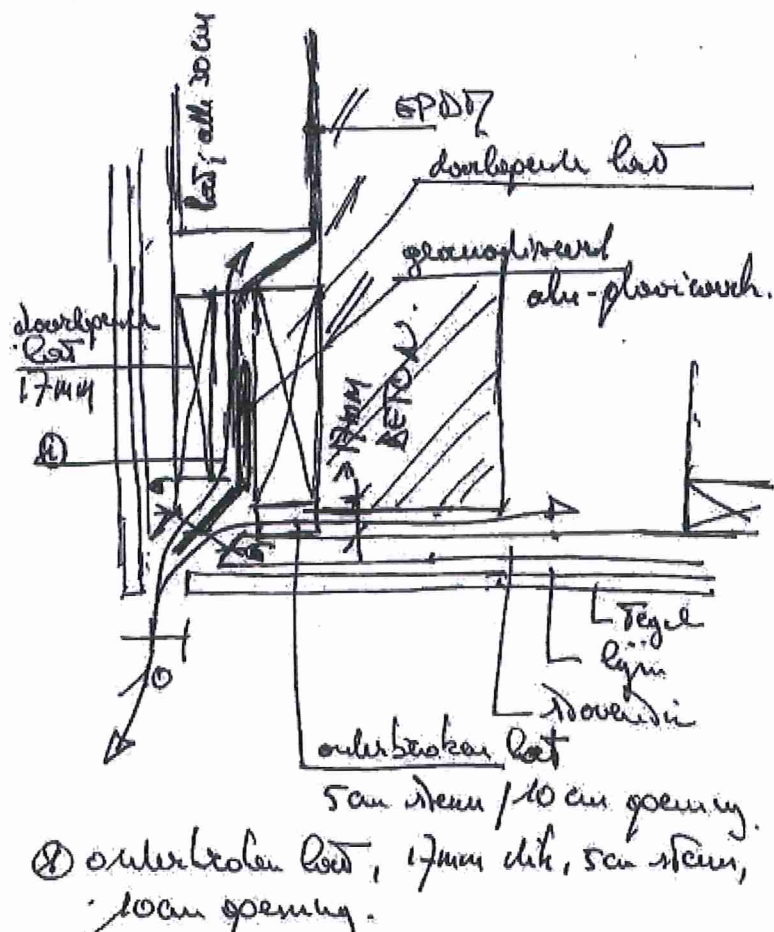 lat; alle 30 cm
EPDM
doorlopende lat
gemoffeld
alu-
doorlopende
lat
17mm
>17MM
BETON
10
Tegel
lijm
onderbroken lat
5cm steun / 10 cm opening.
onderbroken lat, 17mm dik, 5cm steun,
10cm opening.